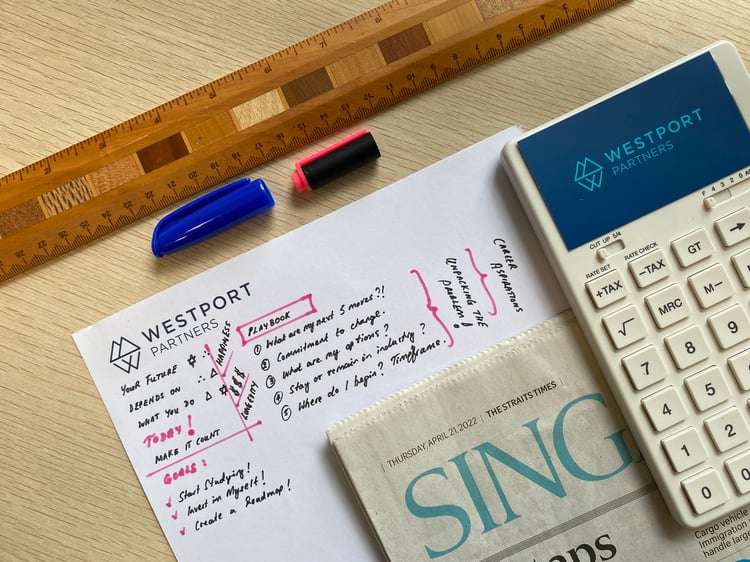 WESTPORT
PARTNERS
YOUR FUTURE
DEPENDS ON
WHAT YOU DO
TODAY!
MAKE IT COUNT
HAPPINESS
$$$
LONGEVITY
GOALS:
Start Studying!
Invest in Myself!
Create a Roadmap!
PLAYBOOK
1 What are my next 5 moves?!
2 Commitment to change.
3 What are my options?
4 Stay or remain in industry?
5 Where do I begin? Timeframe.
UNPACKING THE
PROBLEM!
CAREER
ASPIRATIONS
WESTPORT
PARTNERS
F 4 3 2 0 A
CUT UP 5/4
RATE SET
RATE CHECK
+TAX
-TAX
GT
→
√
MRC
M−
7
8
9
4
5
1
2
0
THURSDAY, APRIL 21, 2022 | THE STRAITS TIMES |
SING
Cargo vehicle
Immigration
handle large